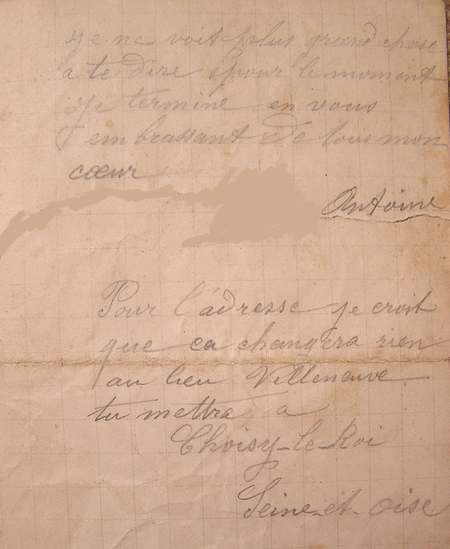 je ne voit plus grand chose
a te dire pour le moment
Je termine en vous
embrassant de tous mon
cœur
Antoine
Pour l'adresse je croit
que ca changera rien
au lieu Villeneuve
tu mettra a
Choisy-le-Roi
Seine-et-oise